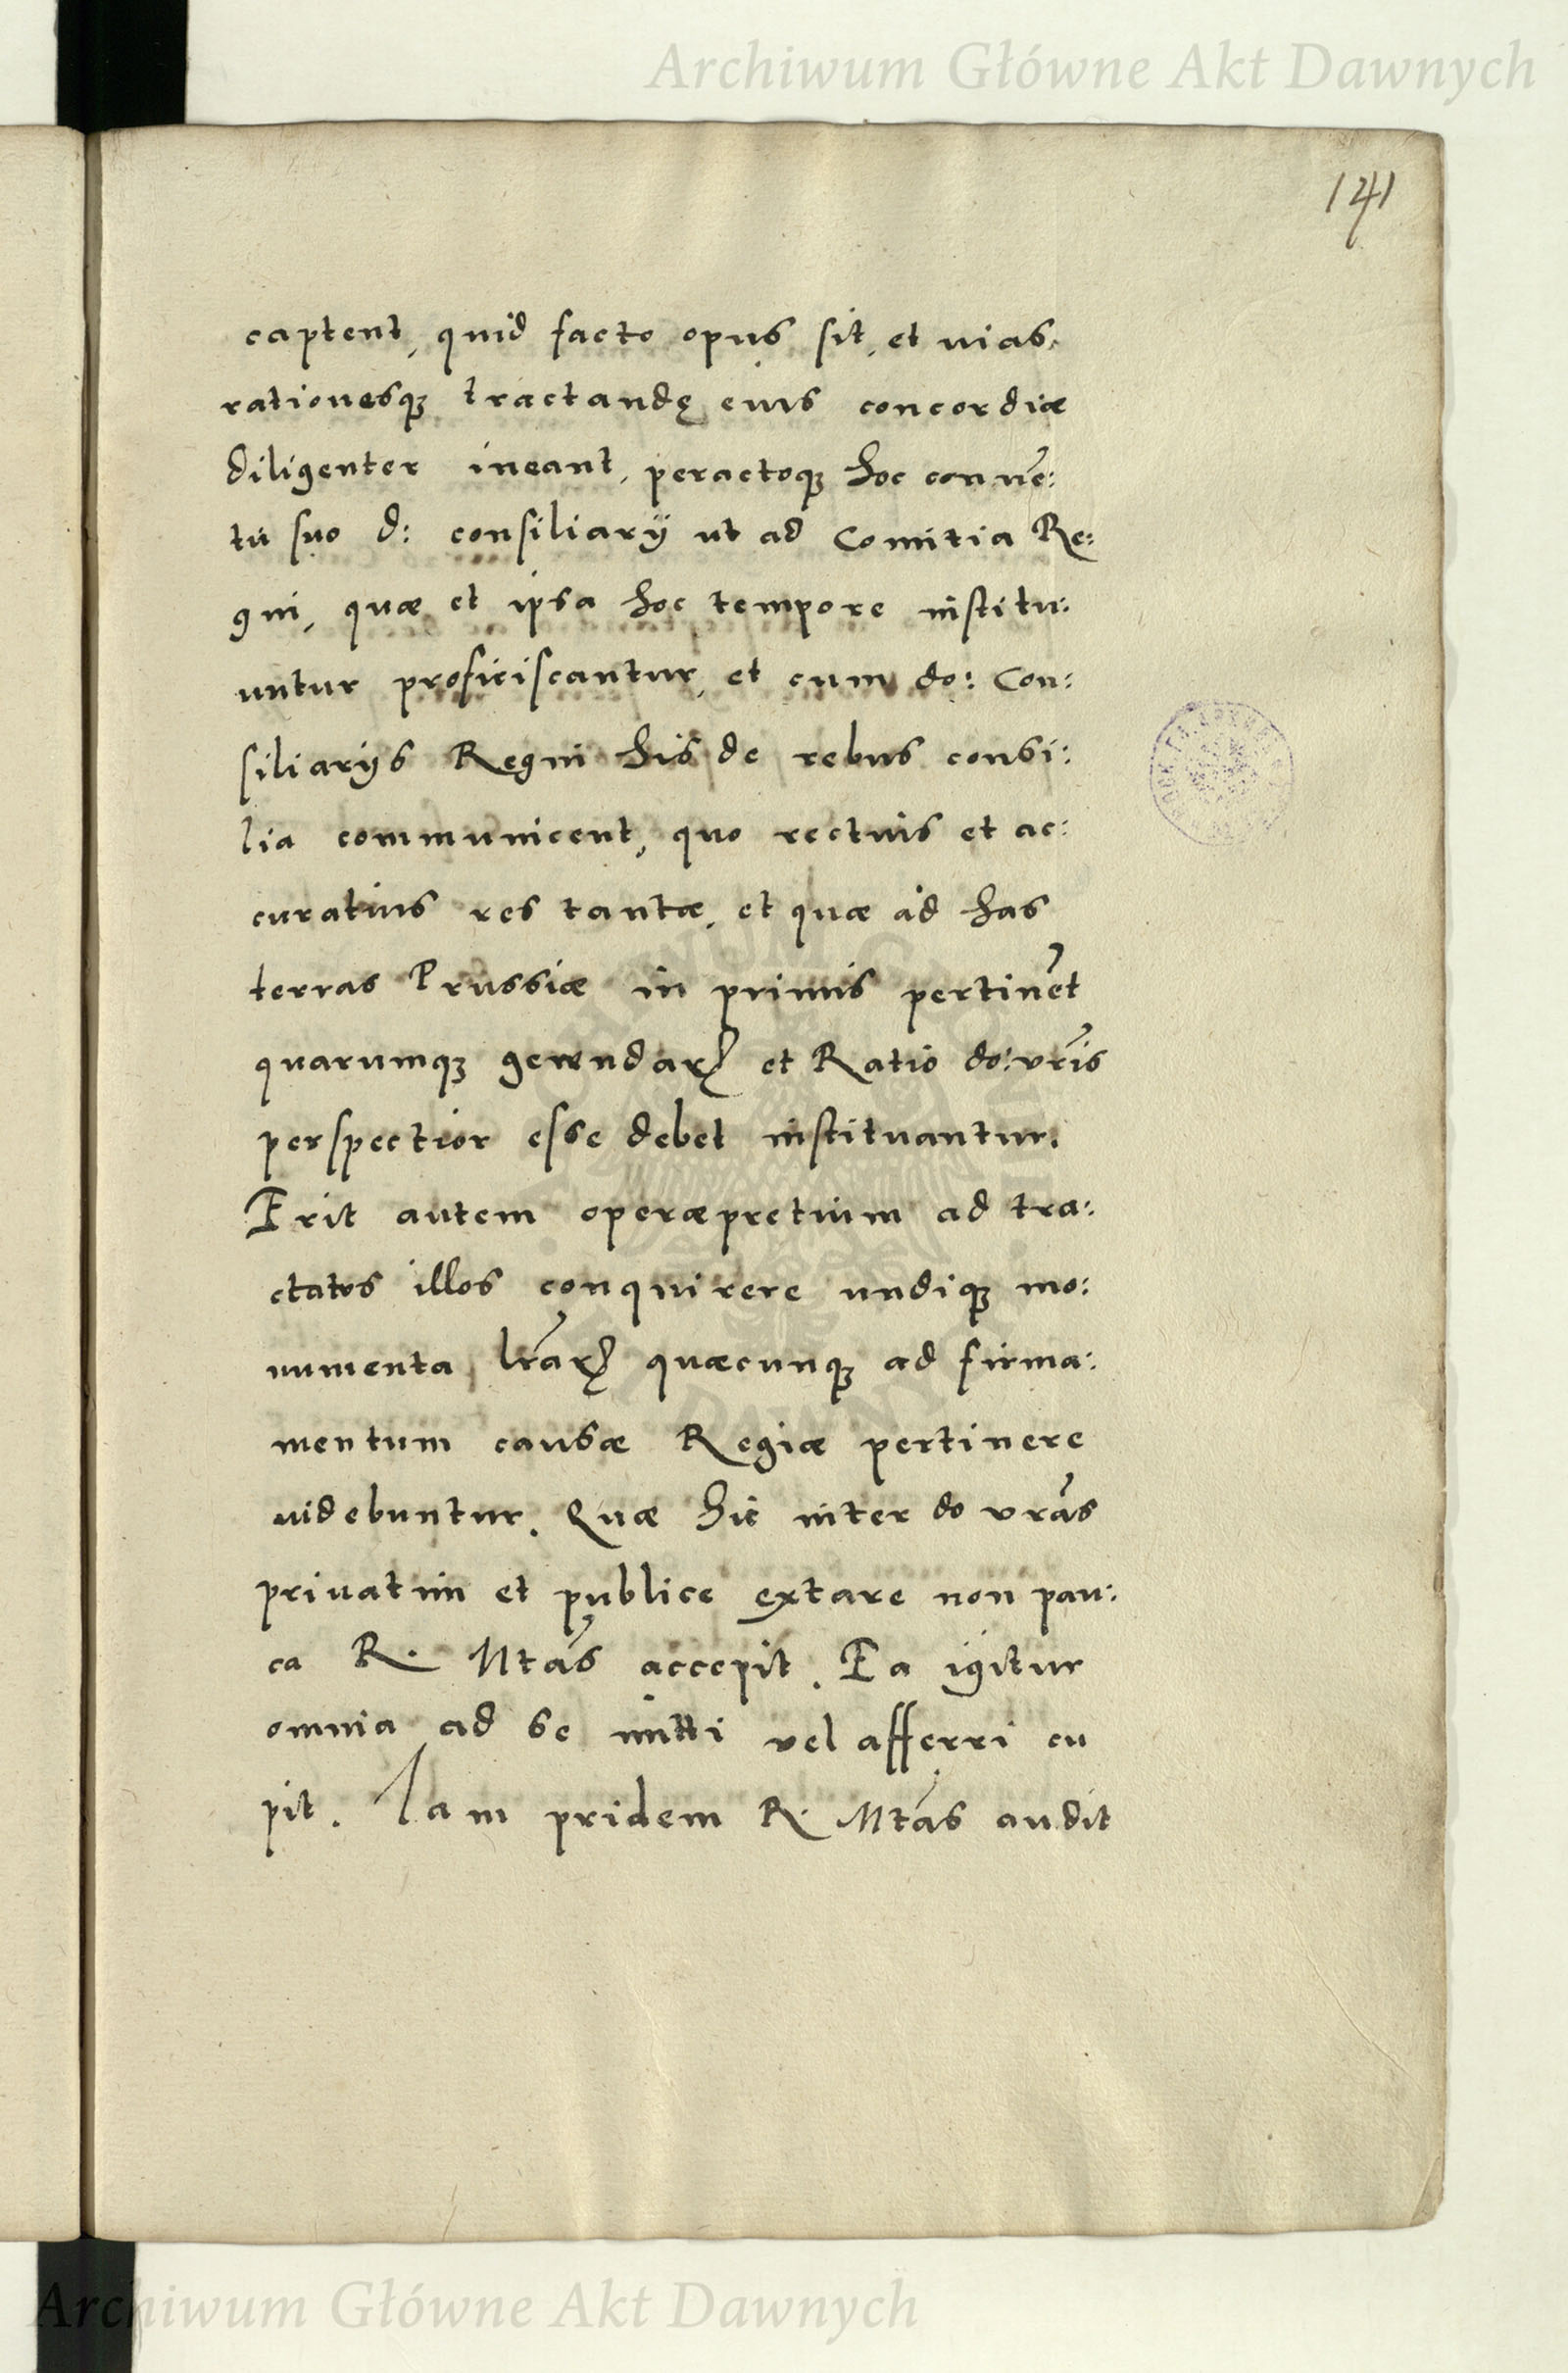 Archiwum Główne Akt Dawnych
141
captent, quid facto opus sit, et uias,
rationesqꝫ tractandę eius concordiæ
diligenter ineant, peractoqꝫ hoc conuē:
tu suo d: consiliarÿ ut ad Comitia Re:
gni, quæ et ipsa hoc tempore institu:
untur proficiscantur, et cum do: Con:
siliarijs Regni his de rebus consi:
lia communicent, quo rectius et ac:
curatius res tantæ, et quæ ad has
terras Prussiæ in primis pertinēt
quarumqꝫ gerendarꝝ et Ratio do: vrīs
perspectior esse debet instituantur.
Erit autem operæpretium ad tra:
ctatos illos conquirere undiqꝫ mo:
numenta lrārꝝ quæcunqꝫ ad firma:
mentum causæ Regiæ pertinere
uidebuntur. Quæ hic inter do vrās
priuatim et publice extare non pau:
ca R. Mtās accepit. Ea igitur
omnia ad se mitti vel afferri cu
pit. Iam pridem R. Mtās audit
Archiwum Główne Akt Dawnych